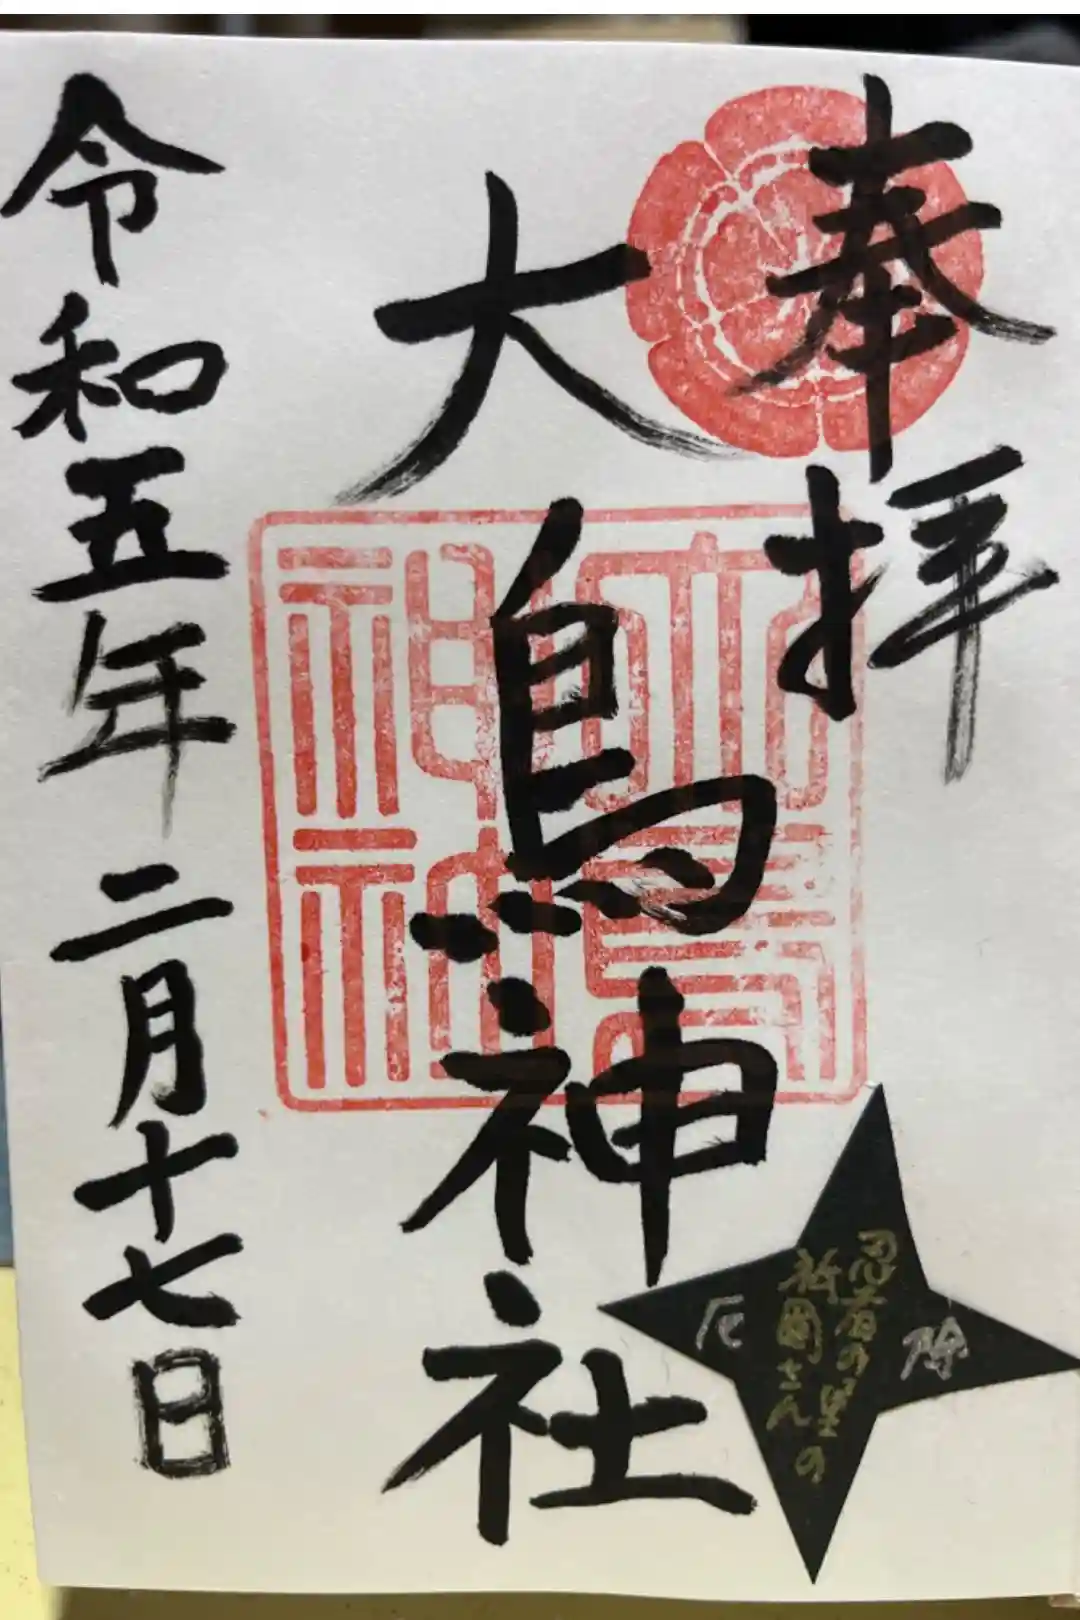 奉拝
大鳥神社
大鳥神社
令和五年二月十七日
忍者の里の
祇園さん
厄除